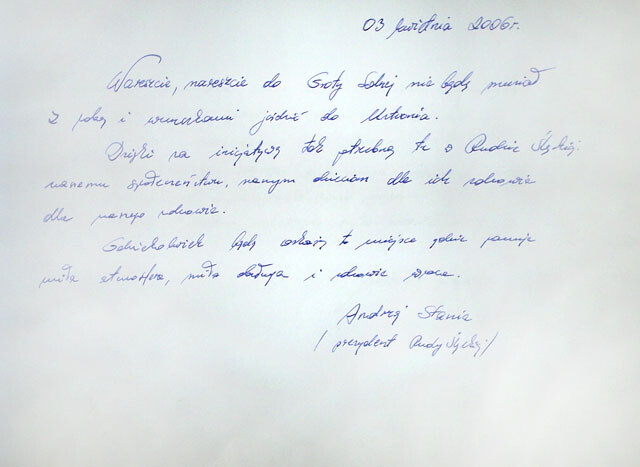 03 kwietnia 2006r.
Nareszcie, nareszcie do Groty Solnej nie będę musiał
z żoną i wnuczkami jeździć do Ustronia.
Dzięki za inicjatywę tak potrzebną tu w Rudzie Śląskiej
naszemu społeczeństwu, naszym dzieciom dla ich zdrowia
dla naszego zdrowia.
Gdziekolwiek będę to miejsce gdzie panuje
miła atmosfera, miła obsługa i zdrowie wraca.
Andrzej Stania
/ prezydent Rudy Śląskiej /